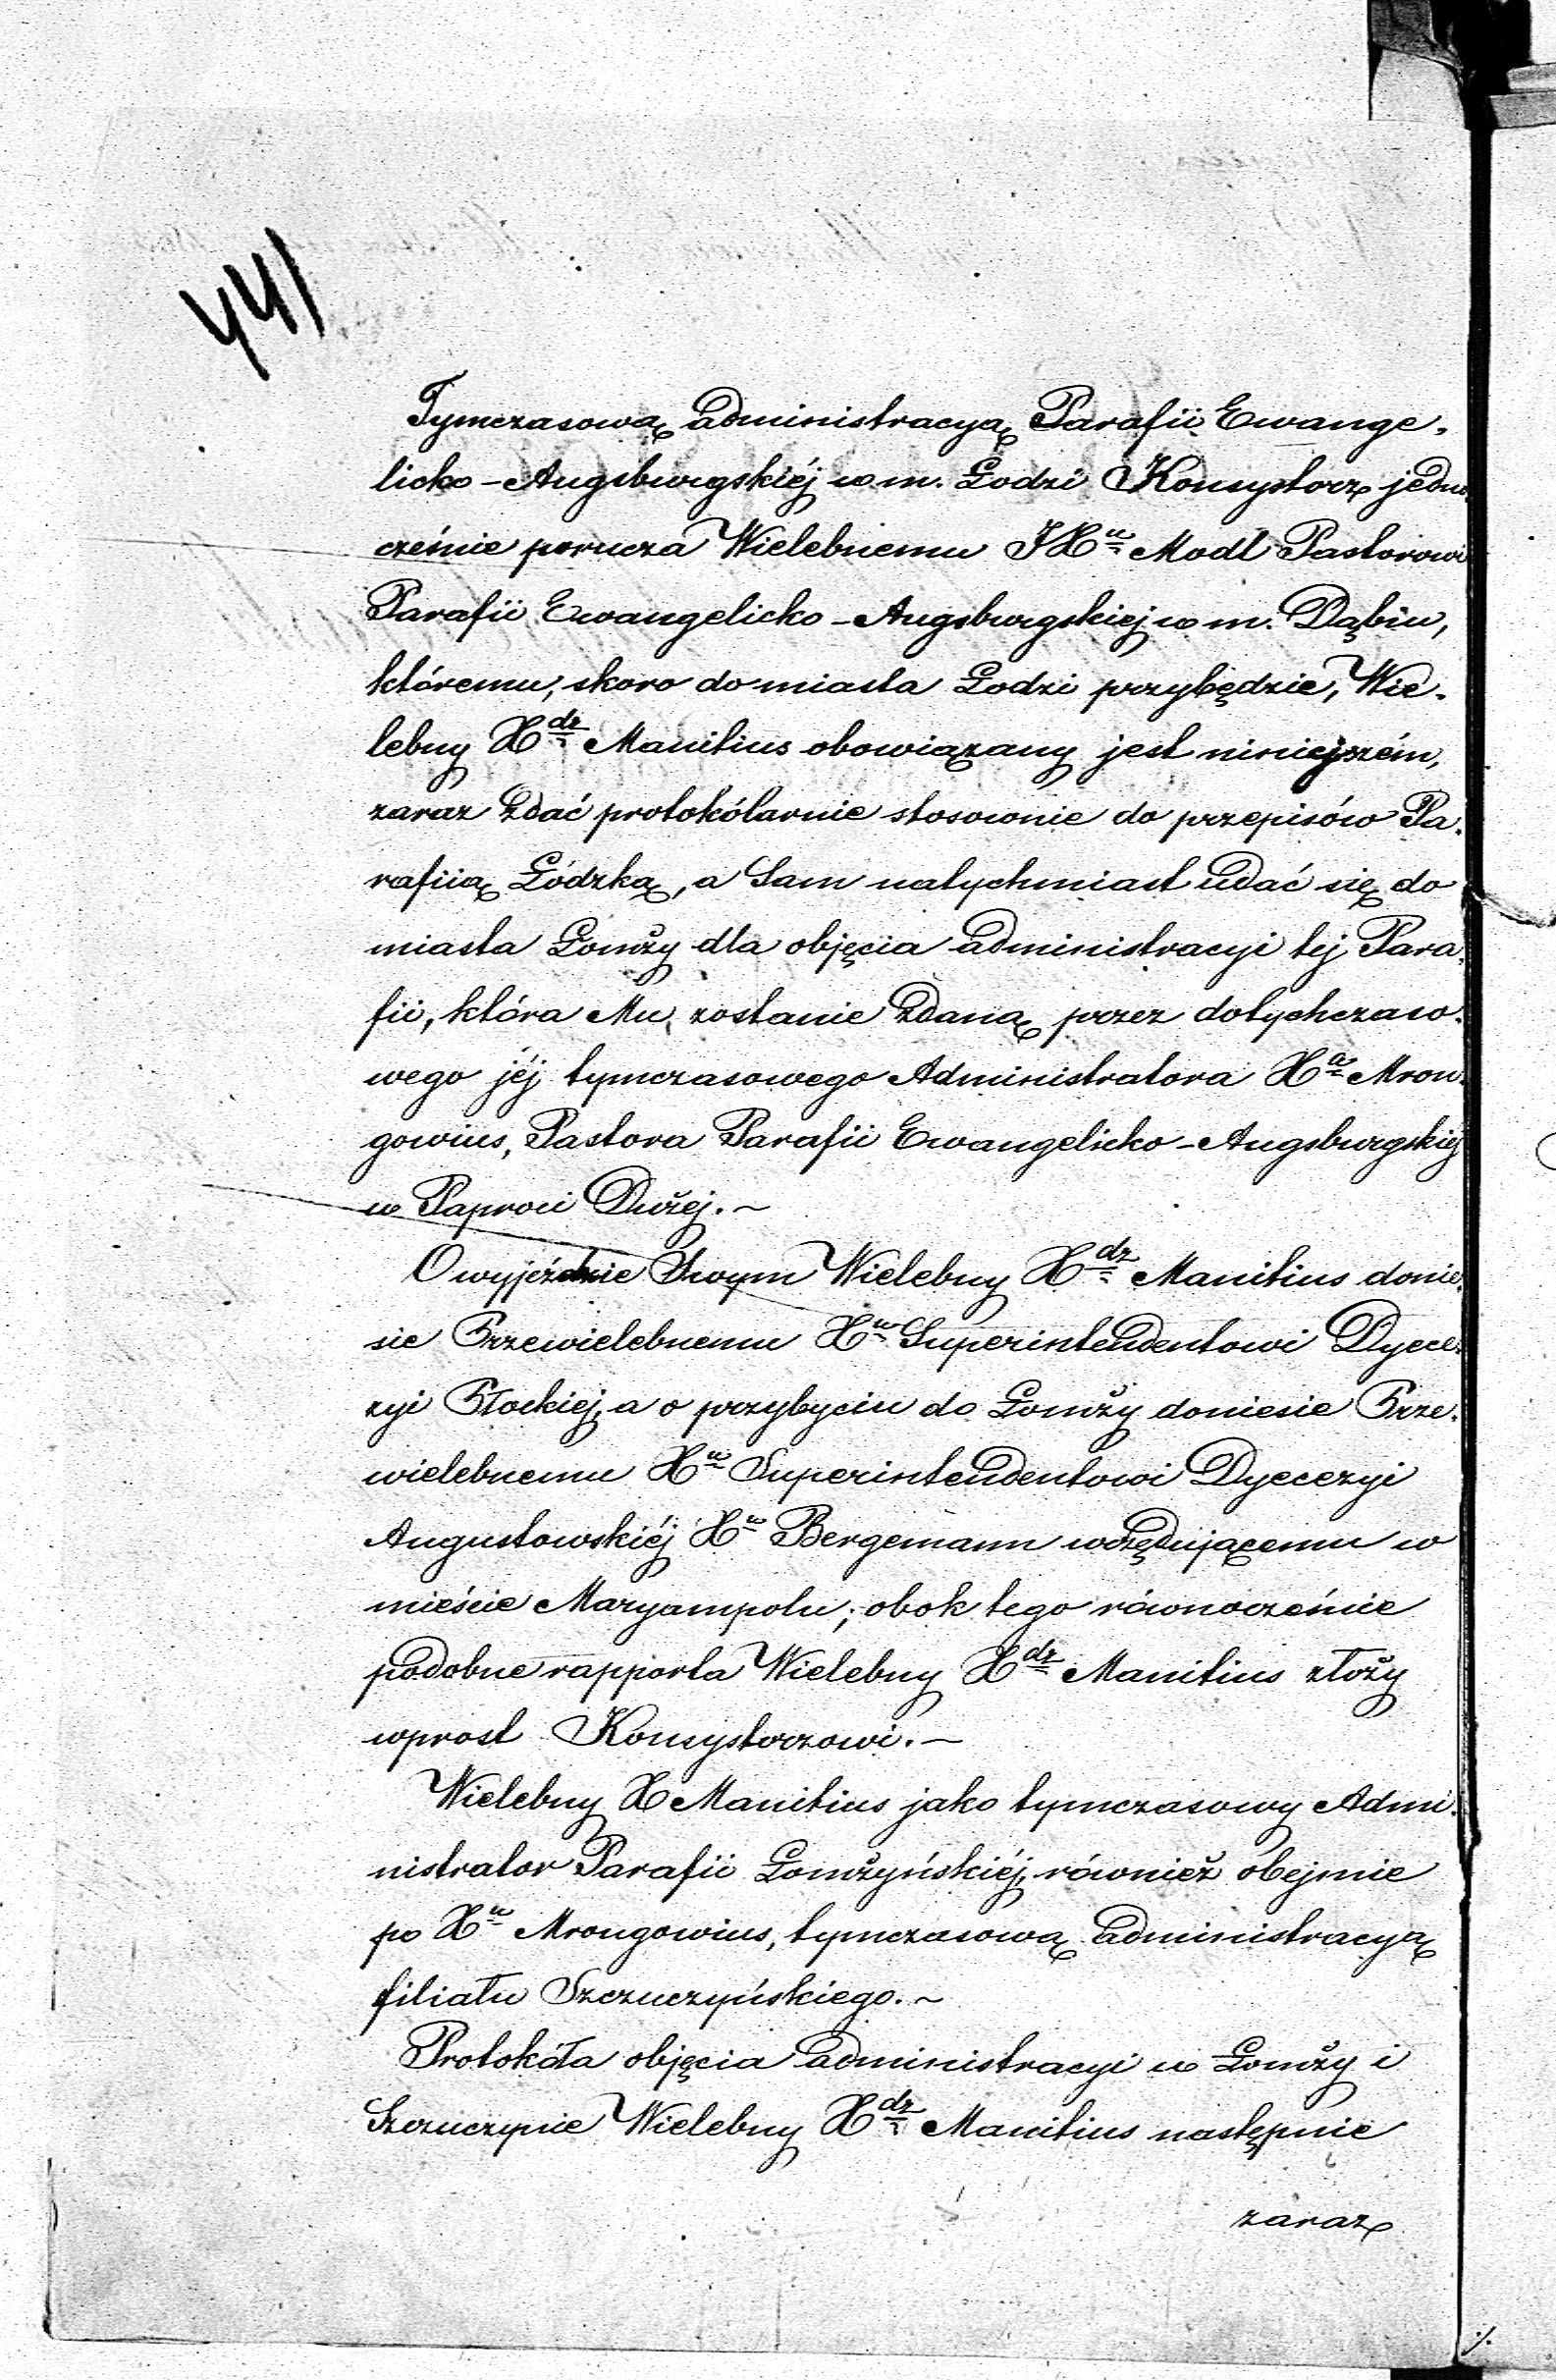 441
Tymczasową administracyą Parafii Ewange-
licko-Augsburgskiéj w m. Łodzi Konsystorz jedno
cześnie porucza Wielebnemu JXu Modl Pastorowi
Parafii Ewangelicko-Augsburgskiej w m. Dąbiu,
któremu, skoro do miasta Łodzi przybędzie, Wie-
lebny Xdz Manitius obowiązany jest niniejszém,
zaraz zdać protokólarnie stosownie do przepisów Pa-
rafiią Łódzką, a Sam natychmiast udać się do
miasta Łomży dla objęcia administracyi tej Para-
fii, która Mu zostanie zdaną przez dotychczaso-
wego jéj tymczasowego Administratora Xa Mron-
gowius, Pastora Parafii Ewangelicko-Augsburgskiej
w Paproci Dużej.~
O wyjeździe Swym Wielebny Xdz Manitius donie-
sie Przewielebnemu Xu Superintendentowi Dyece-
zyi Płockiej, a o przybyciu do Łomży doniesie Prze-
wielebnemu Xu Superintendentowi Dyecezyi
Augustowskiéj Xu Bergemann urzędującemu w
mieście Maryampolu; obok tego równocześnie
podobne rapporta Wielebny Xdz Manitius złoży
wprost Konsystorzowi.~
Wielebny X Manitius jako tymczasowy Admi-
nistrator Parafii Łomżyńskiéj, również obejmie
po Xu Mrongowius, tymczasową administracyą
filiału Szczuczyńskiego.~
Protokóła objęcia administracyi w Łomży i
Szczuczynie Wielebny Xdz Manitius następnie
zaraz
./.